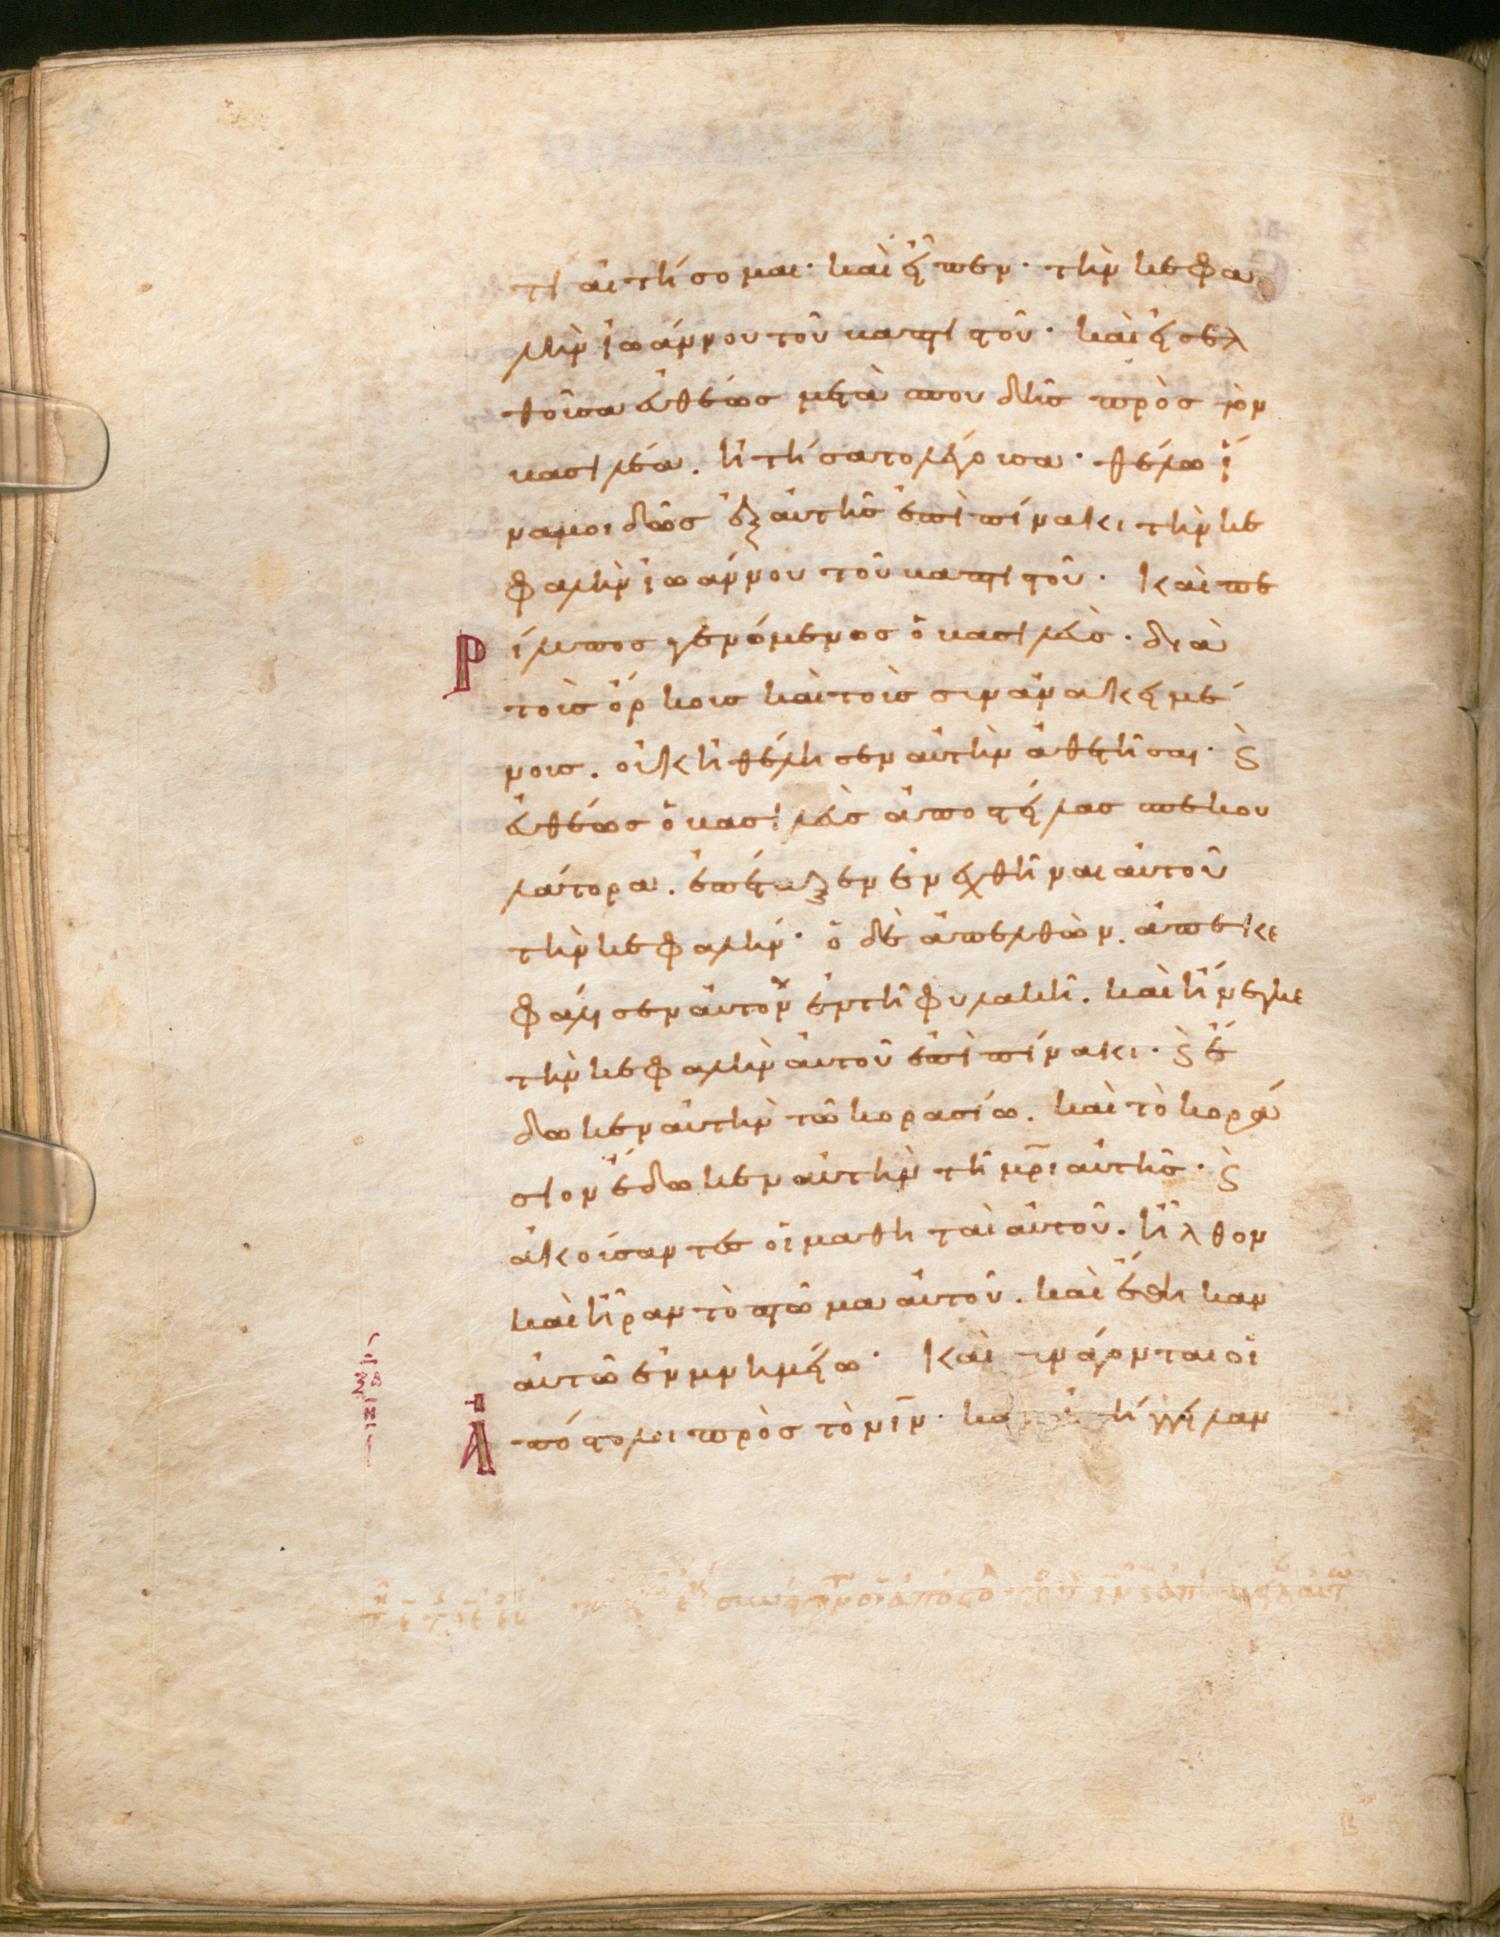 τί αἰτήσομαι· καὶ εἶπεν· τὴν κεφα
λὴν ἰωάννου τοῦ βαπτιστοῦ· καὶ εἰσελ
θοῦσα εὐθέως μετὰ σπουδῆς πρὸς τὸν
βασιλέα. ἠτήσατο λέγουσα· θέλω ἵ
να μοι δῶς ἐξ αὐτῆς ἐπὶ πίνακι τὴν κε
φαλὴν ἰωάννου τοῦ βαπτιστοῦ· Καὶ πε
Ρίλυπος γενόμενος ὁ βασιλεὺς· διὰ
τοὺς ὅρκους καὶ τοὺς συνανακειμέ
νους. οὐκ ἠθέλησεν αὐτὴν ἀθετῆσαι· ϗ
εὐθέως ὁ βασιλεὺς ἀποστείλας σπεκου
λάτορα. ἐπέταξεν ἐνεχθῆναι αὐτοῦ
τὴν κεφαλήν· ὁ δὲ ἀπελθὼν. ἀπεκε
φάλισεν αὐτὸν ἐν τῆ φυλακῆ. καὶ ἤνεγκε
τὴν κεφαλὴν αὐτοῦ ἐπὶ πίνακι· ϗ ἔ
δωκεν αὐτὴν τῶ κορασίω. καὶ τὸ κορά
σιον ἔδωκεν αὐτὴν τῆ μρι αὐτῆς· ϗ
ἀκούσαντες οἱ μαθηταὶ αὐτοῦ. ἦλθον
καὶ ἦραν τὸ πτῶμα αὐτοῦ. καὶ ἔθηκαν
αὐτὸ ἐν μνημείω· Καὶ συνάγονται οἱ
Ἀπόστολοι πρὸς τὸν ιν· καὶ ἀπήγγειλαν